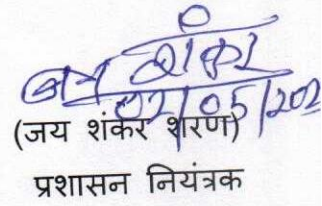 जय शंकर
02/05/202
(जय शंकर शरण)
प्रशासन नियंत्रक